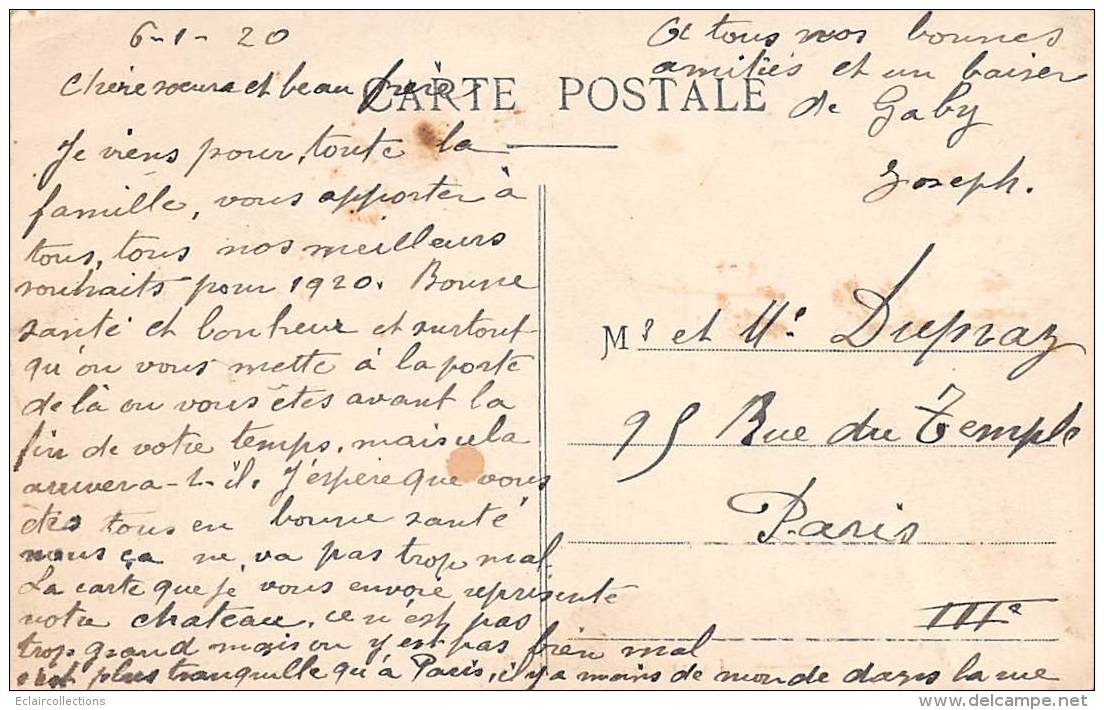 6-1-20
Chère soeur et beau frère
CARTE POSTALE
Je viens pour toute la
famille, vous apporter à
tous, tous nos meilleurs
souhaits pour 1920. Bonne
santé et bonheur et surtout
qu'on vous mette à la porte
de là ou vous êtes avant la
fin de votre temps, mais cela
arrivera-t-il. J'espère que vous
êtes tous en bonne santé
nous ça ne va pas trop mal
La carte que je vous envoie représente
notre chateau, ce n'est pas
trop grand mais on y est pas bien mal
c'est plus tranquille qu'à Paris, il y a moins de monde dans la rue
A tous nos bonnes
amitiés et un baiser
de Gaby
Joseph.
Mr et Me Dupraz
95 Rue du Temple
Paris
IIIe
Eclaircollections
delcampe.net